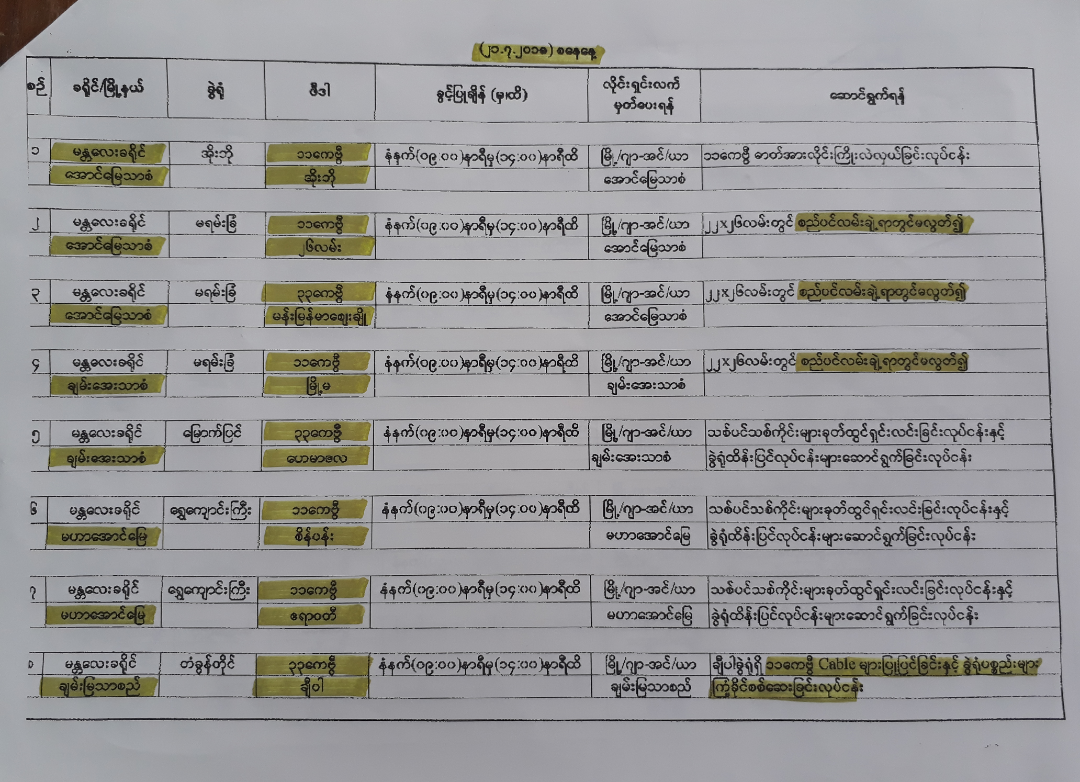 (၂၁.၇.၂၀၁၈) စနေနေ့
စဉ် ခရိုင်/မြို့နယ် ခွဲရုံ ဖီဒါ ခွင့်ပြုချိန် (မှ၊ထိ) လိုင်းရှင်းလက် ဆောင်ရွက်ရန်
မှတ်ပေးရန်
၁ မန္တလေးခရိုင် အိုးဘို ၁၁ကေဗွီ နံနက်(၀၉:၀၀)နာရီမှ(၁၄:၀၀)နာရီထိ မြို့/ဂျာ-အင်/ယာ ၁၁ကေဗွီ ဓာတ်အားလိုင်းကြိုးလဲလှယ်ခြင်းလုပ်ငန်း
အောင်မြေသာစံ အိုးဘို အောင်မြေသာစံ
၂ မန္တလေးခရိုင် မရမ်းခြံ ၁၁ကေဗွီ နံနက်(၀၉:၀၀)နာရီမှ(၁၄:၀၀)နာရီထိ မြို့/ဂျာ-အင်/ယာ ၂၂x၂၆လမ်းတွင် စည်ပင်လမ်းချဲ့ရာတွင်မလွတ်၍
အောင်မြေသာစံ ၂၆လမ်း အောင်မြေသာစံ
၃ မန္တလေးခရိုင် မရမ်းခြံ ၃၃ကေဗွီ နံနက်(၀၉:၀၀)နာရီမှ(၁၄:၀၀)နာရီထိ မြို့/ဂျာ-အင်/ယာ ၂၂x၂၆လမ်းတွင် စည်ပင်လမ်းချဲ့ရာတွင်မလွတ်၍
အောင်မြေသာစံ မန်းမြန်မာဈေးချို အောင်မြေသာစံ
၄ မန္တလေးခရိုင် မရမ်းခြံ ၁၁ကေဗွီ နံနက်(၀၉:၀၀)နာရီမှ(၁၄:၀၀)နာရီထိ မြို့/ဂျာ-အင်/ယာ ၂၂x၂၆လမ်းတွင် စည်ပင်လမ်းချဲ့ရာတွင်မလွတ်၍
ချမ်းအေးသာစံ မြို့မ ချမ်းအေးသာစံ
၅ မန္တလေးခရိုင် မြောက်ပြင် ၃၃ကေဗွီ နံနက်(၀၉:၀၀)နာရီမှ(၁၄:၀၀)နာရီထိ မြို့/ဂျာ-အင်/ယာ သစ်ပင်သစ်ကိုင်းများခုတ်ထွင်ရှင်းလင်းခြင်းလုပ်ငန်းနှင့်
ချမ်းအေးသာစံ ဟေမာဇလ ချမ်းအေးသာစံ ခွဲရုံထိန်းပြင်လုပ်ငန်းများဆောင်ရွက်ခြင်းလုပ်ငန်း
၆ မန္တလေးခရိုင် ရွှေကျောင်းကြီး ၁၁ကေဗွီ နံနက်(၀၉:၀၀)နာရီမှ(၁၄:၀၀)နာရီထိ မြို့/ဂျာ-အင်/ယာ သစ်ပင်သစ်ကိုင်းများခုတ်ထွင်ရှင်းလင်းခြင်းလုပ်ငန်းနှင့်
မဟာအောင်မြေ စိန်ပန်း မဟာအောင်မြေ ခွဲရုံထိန်းပြင်လုပ်ငန်းများဆောင်ရွက်ခြင်းလုပ်ငန်း
၇ မန္တလေးခရိုင် ရွှေကျောင်းကြီး ၁၁ကေဗွီ နံနက်(၀၉:၀၀)နာရီမှ(၁၄:၀၀)နာရီထိ မြို့/ဂျာ-အင်/ယာ သစ်ပင်သစ်ကိုင်းများခုတ်ထွင်ရှင်းလင်းခြင်းလုပ်ငန်းနှင့်
မဟာအောင်မြေ ဧရာဝတီ မဟာအောင်မြေ ခွဲရုံထိန်းပြင်လုပ်ငန်းများဆောင်ရွက်ခြင်းလုပ်ငန်း
၈ မန္တလေးခရိုင် တံခွန်တိုင် ၃၃ကေဗွီ နံနက်(၀၉:၀၀)နာရီမှ(၁၄:၀၀)နာရီထိ မြို့/ဂျာ-အင်/ယာ ချီပါခွဲရုံရှိ ၁၁ကေဗွီ Cable များပြုပြင်ခြင်းနှင့် ခွဲရုံပစ္စည်းများ
ချမ်းမြသာစည် ချီပါ ချမ်းမြသာစည် ကြံ့ခိုင်စစ်ဆေးခြင်းလုပ်ငန်း